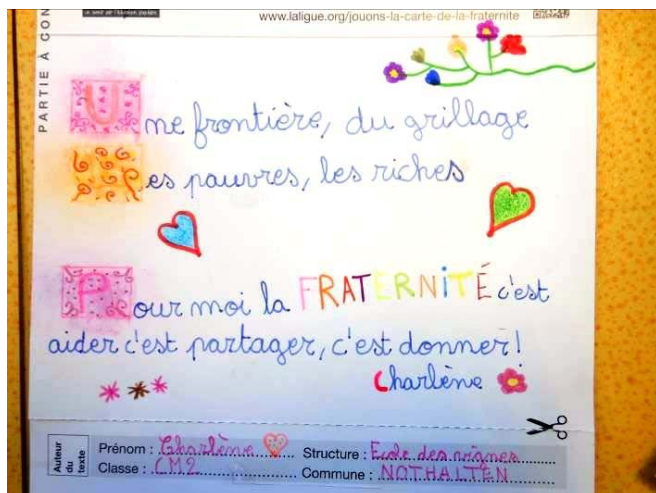 www.laligue.org/jouons-la-carte-de-la-fraternite
PARTIE À CON
Une frontière, du grillage
Les pauvres, les riches
Pour moi la FRATERNITÉ c'est
aider c'est partager, c'est donner!
Charlène
Auteur du texte
Prénom : Charlène Structure : Ecole des vignes
Classe : CM2 Commune : NOTHALTEN